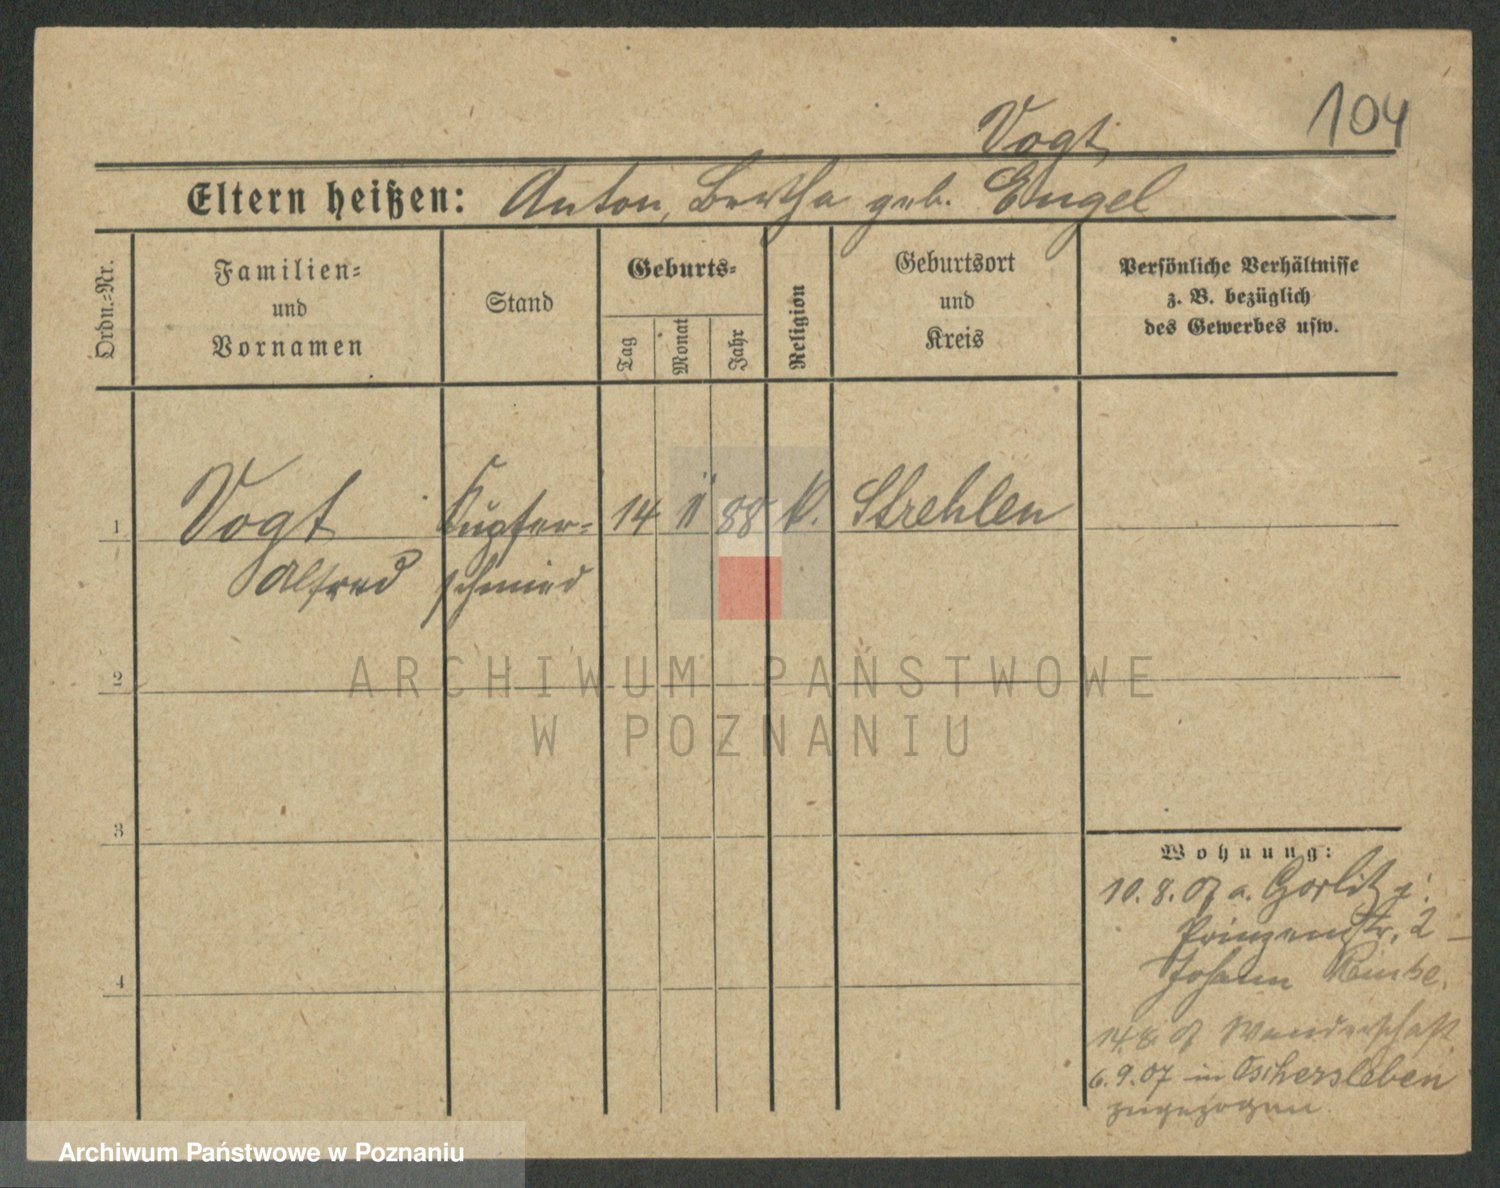 104
Vogt,
Eltern heißen: Anton, Bertha geb. Engel
Ordn.=Nr.
Familien=
und
Vornamen
Stand
Geburts=
Tag
Monat
Jahr
Religion
Geburtsort
und
Kreis
Persönliche Verhältnisse
z. B. bezüglich
des Gewerbes usw.
1 Vogt Kupfer= 14 88 k. Strehlen
Alfred schmied
2
3
4
Wohnung:
10.8.07 a. Görlitz
Prinzenstr. 2
Johann
14.8.07 Wanderschaft
6.9.07 in Oschersleben
zugezogen.
ARCHIWUM PAŃSTWOWE
W POZNANIU
Archiwum Państwowe w Poznaniu